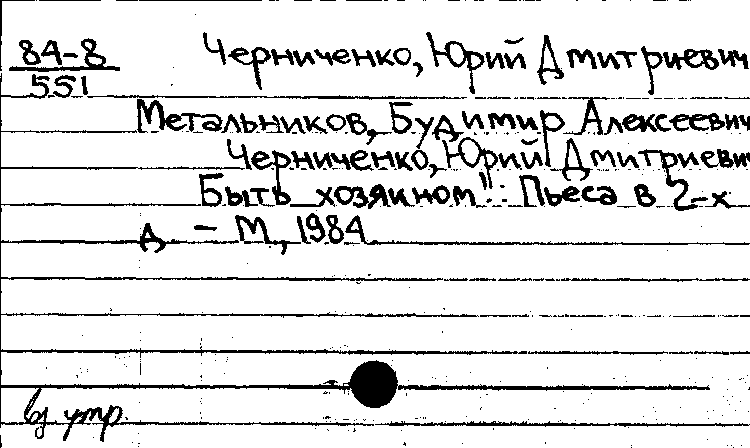 84-8 Черниченко, Юрий Дмитриевич
551
Метальников, Будимир Алексеевич
Черниченко, Юрий Дмитриевич
Быть хозяином!: Пьеса в 2-х
д. - М, 1984.
утр.